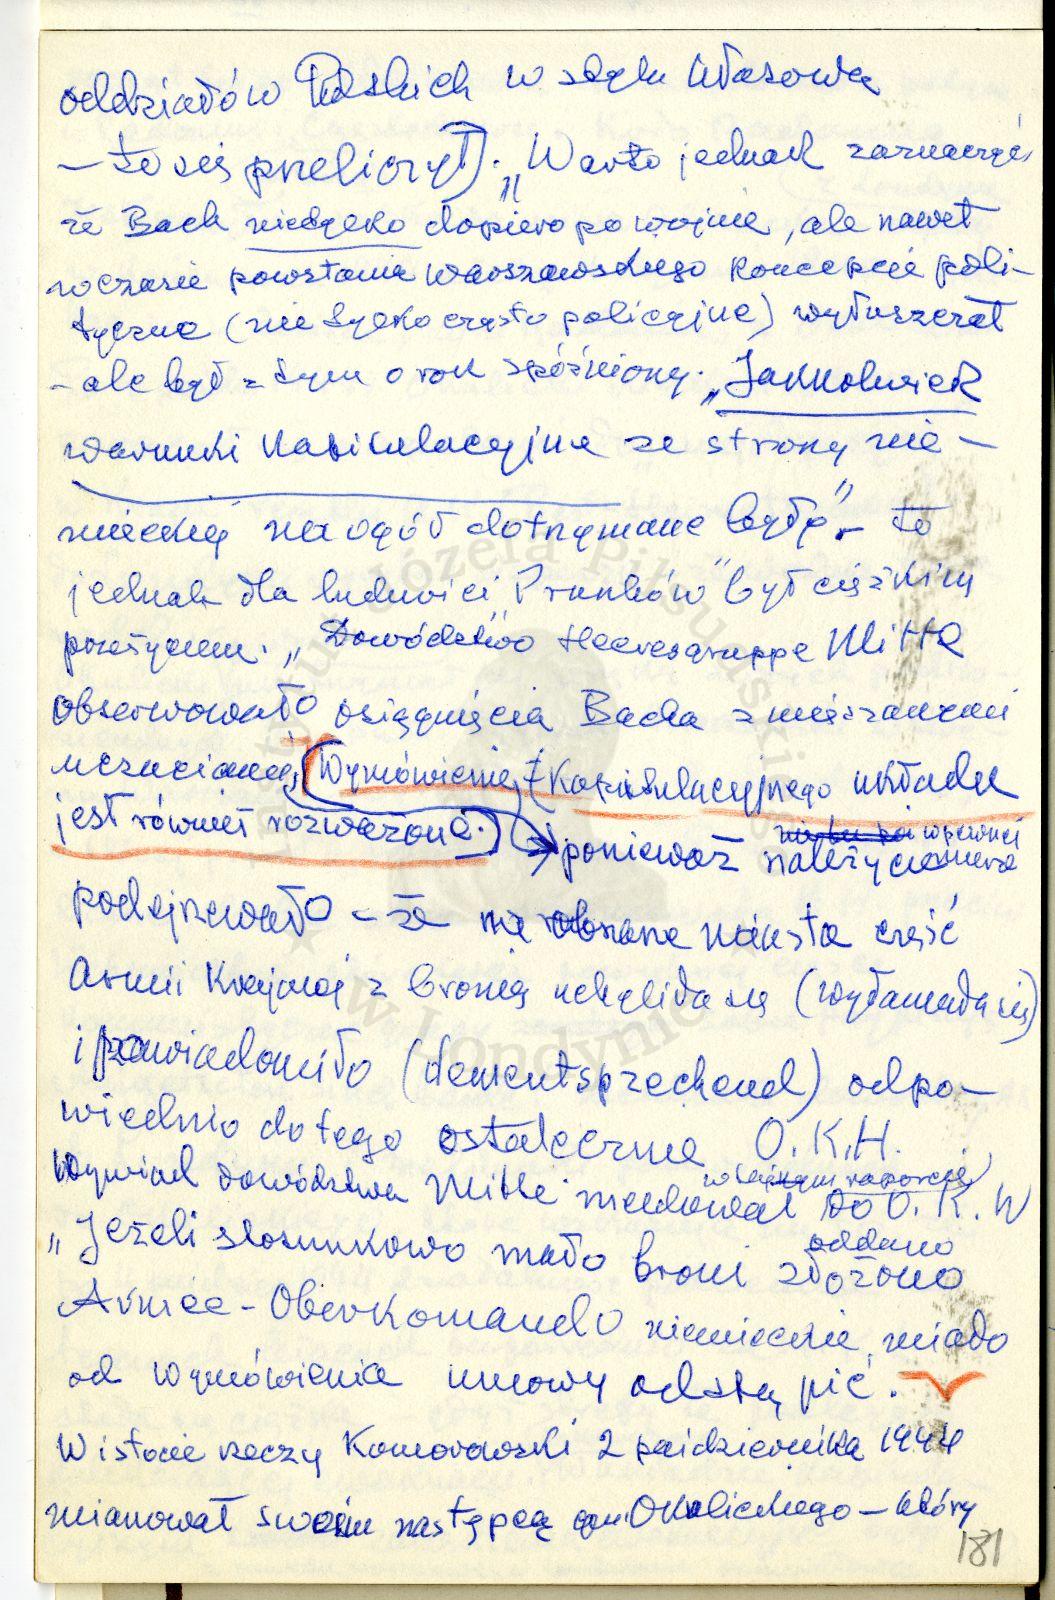 oddziałów Polskich w stylu Własowa
– to się przeliczył). „Warto jednak zaznaczyć,
że Bach nietylko dopiero po wojnie, ale nawet
w czasie powstania warszawskiego koncepcje poli-
tyczne (nie tylko czysto policyjne) wyłuszczał
– ale był z tym o rok spóźniony. „Jakkolwiek
warunki kapitulacyjne ze strony nie-
mieckiej na ogół dotrzymane były" – to
jednak dla ludności „Prunków" był ciężkim
przeżyciem. „Dowództwo Heeresgruppe Mitte
obserwowało osiągnięcia Bacha z mieszanemi
uczuciami, (Wymówienie kapitulacyjnego układu
jest również rozważane.) ponieważ należycie w pewnej mierze
podejrzewało – że nie rozbrojona część
Armii Krajowej z bronią uchyliła się (wyłamała się)
i powiadomiło (dementsprechend) odpo-
wiednio do tego ostatecznie O.K.H.
Wywiad dowództwa Mitte meldował w tajnym raporcie do O.K.W
„Jeżeli stosunkowo mało broni złożono oddano
Armee-Oberkomando niemieckie miało
od wymówienia umowy odstąpić.
W istocie rzeczy Komorowski 2 października 1944
mianował swoim następcą gen. Okulickiego – który
181